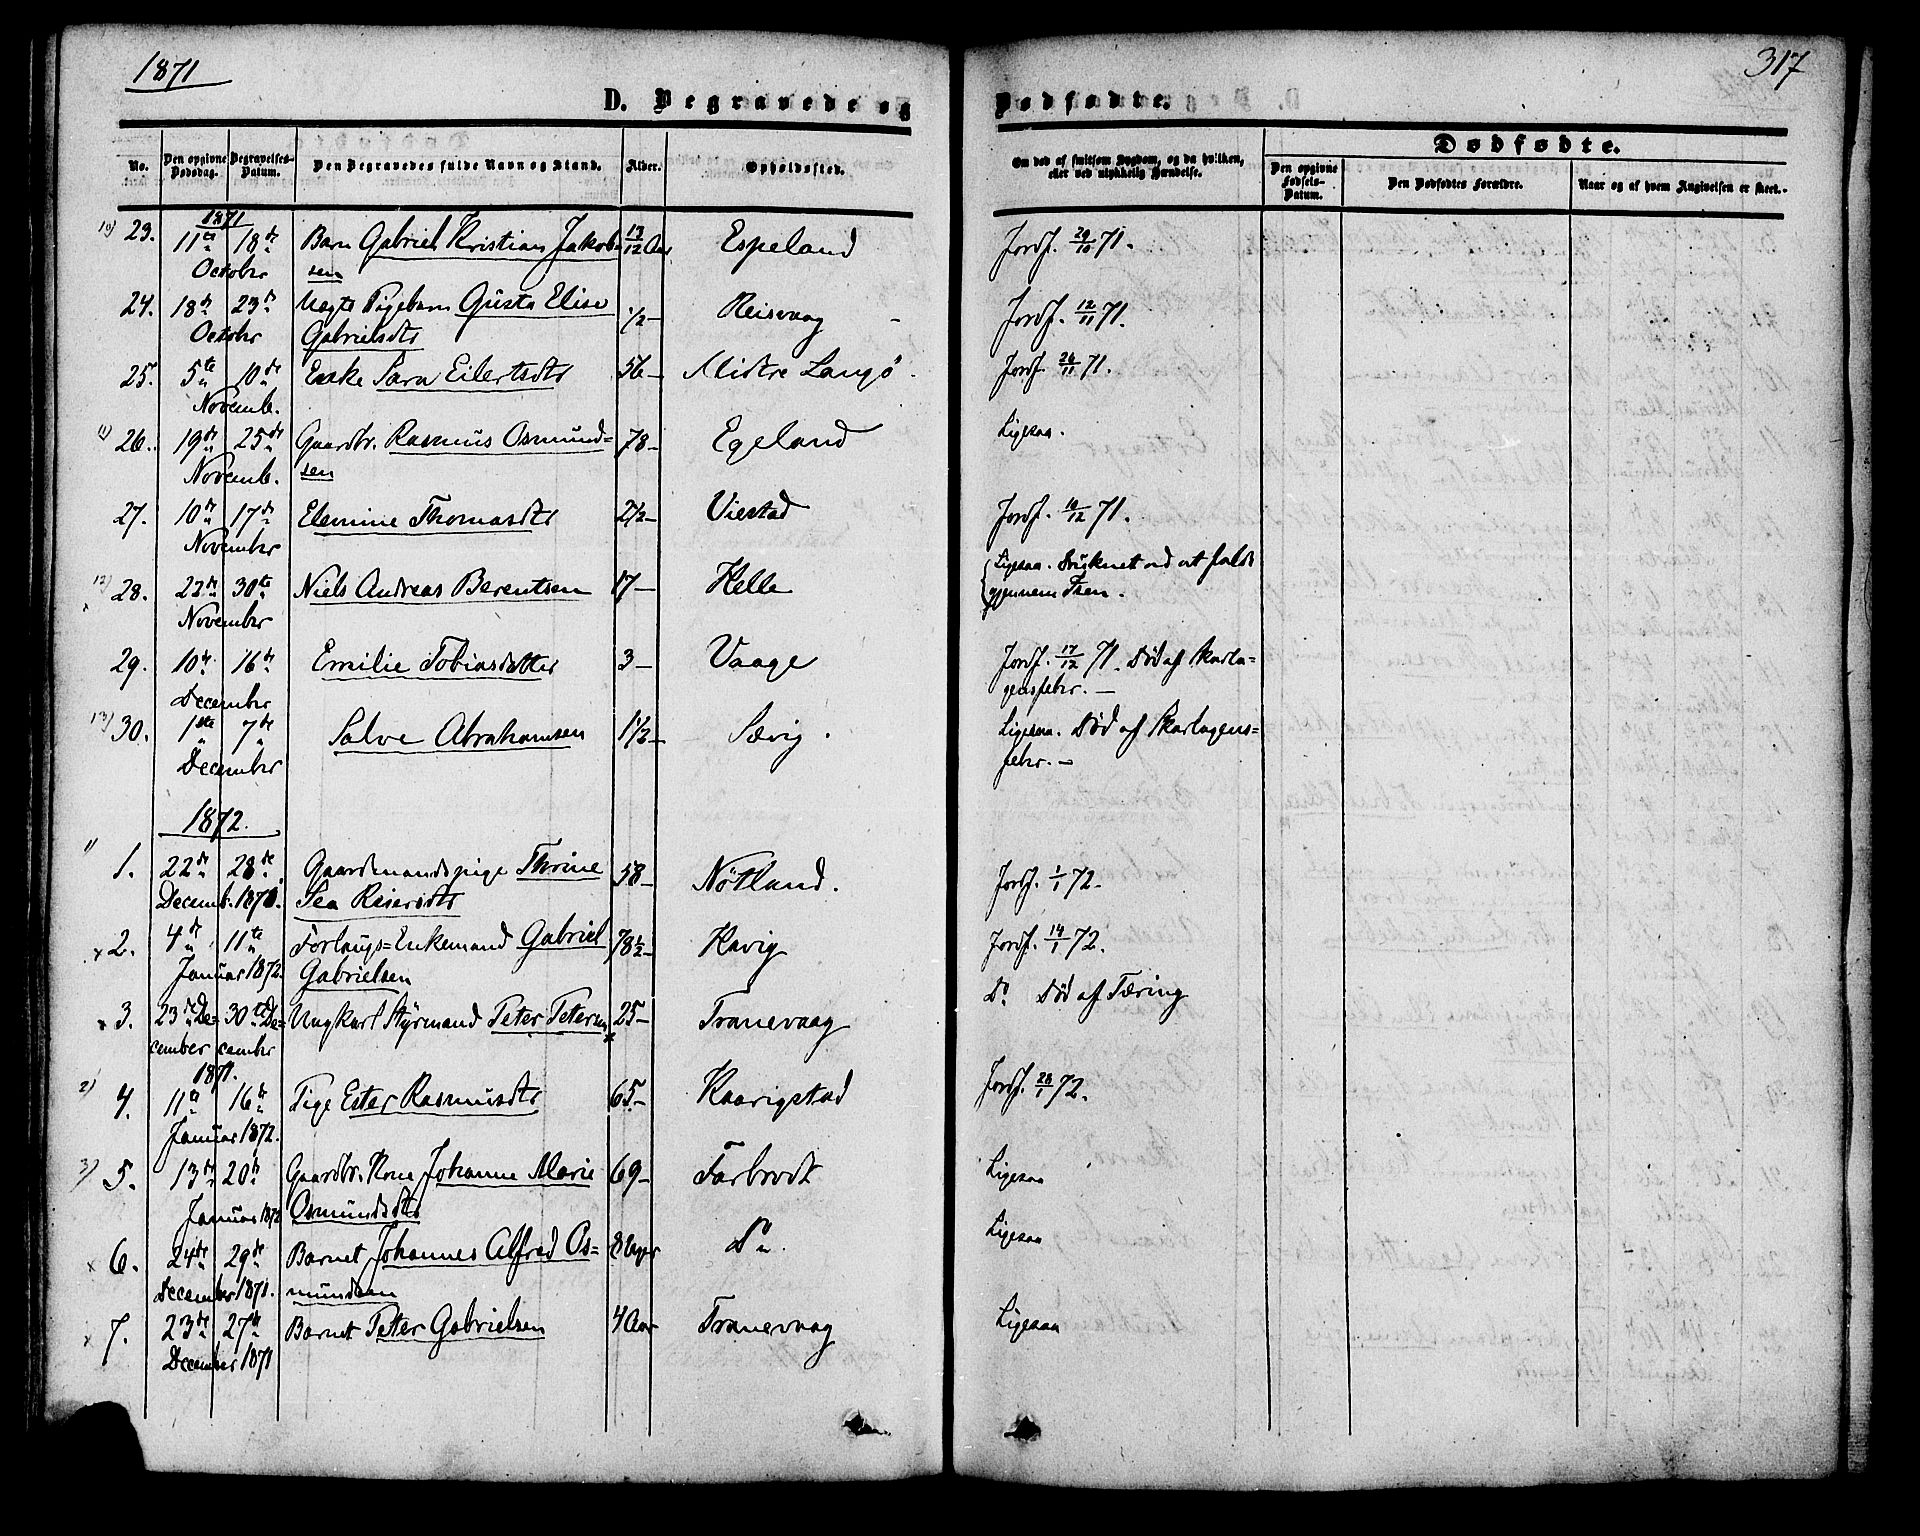 1871
317
D. Begravede og Dødfødte.
No.
Den opgivne Dødsdag.
Begravelses-Datum.
Den Begravedes fulde Navn og Stand.
Alder.
Opholdssted.
Om død af smitsom Sygdom, og da hvilken, eller ved ulykkelig Hændelse.
Dødfødte.
Den opgivne Fødsels-Datum.
Den Dødfødtes Forældre.
Naar og af hvem Angivelsen er skeet.
1871
10) 23. 11te 18de Barn Gabriel Kristian Jakob- Aar Espeland Jordf. 29/10 71.
October sen
24. 18de 23de Uægte Pigebarn Gusta Elise 1/2 – Reisvaag – Jordf. 12/11 71.
October Gabrielsdtr
25. 5te 10de Enke Sara Eilertsdtr 56 – Midtre Langø. Jordf. 26/11 71.
Novemb.
11) 26. 19de 25de Gaardbr. Rasmus Osmund= 78 – Egeland Ligesaa.
Novemb. sen
27. 10de 17de Elemine Thomasdtr 2 1/2 – Viestad Jordf. 10/12 71.
November
12) 28. 22de 30te Niels Andreas Berentsen 17 – Helle Ligesaa. Druknet ved at falde
November gjennem Isen.
29. 10de 16de Emilie Tobiasdatter 3 – Vaage Jordf. 17/12 71. Død af Skarla-
December gensfeber. –
13) 30. 1ste 7de Salve Abrahamsen 1 1/2 – Sævig. Ligesaa. Død af Skarlagens=
December feber. –
1872.
1) 1. 22de 28de Gaardmandspige Thrine 58 – Nøtland. Jordf. 1/1 72.
Decemb. 1871. Sea Reiersdtr
x 2. 4de 11te Forlaugs=Enkemand Gabriel 78 1/2 – Kavig Jordf. 14/1 72.
Januar 1872. Gabrielsen
x 3. 23de De= 30te De= Ungkarl Styrmand Peter Petersen 25 – Tranevaag Do Død af Tæring
cember cember
1871.
2) 4. 11te 16de Pige Ester Rasmusdtr 65. – Kaarigstad Jordf. 28/1 72.
Januar 1872.
3) 5. 13de 20de Gaardbr. Kone Johanne Marie 69 – Farbrodt Ligesaa
Januar 1872 Osmundsdtr
x 6. 24de 29de Barnet Johannes Alfred Os= 8 Uger Do. Ligesaa
December 1871. mundsen
x 7. 23de 27de Barnet Peter Gabrielsen 4 Aar Tranevaag Ligesaa
December 1871